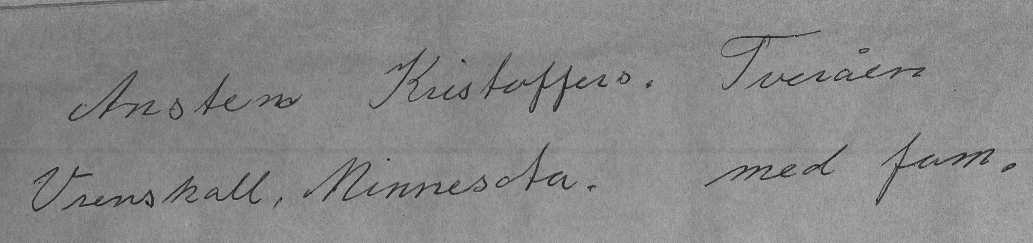 Ansten Kristoffers. Tveråen
Vrenskall, Minnesota. med fam.